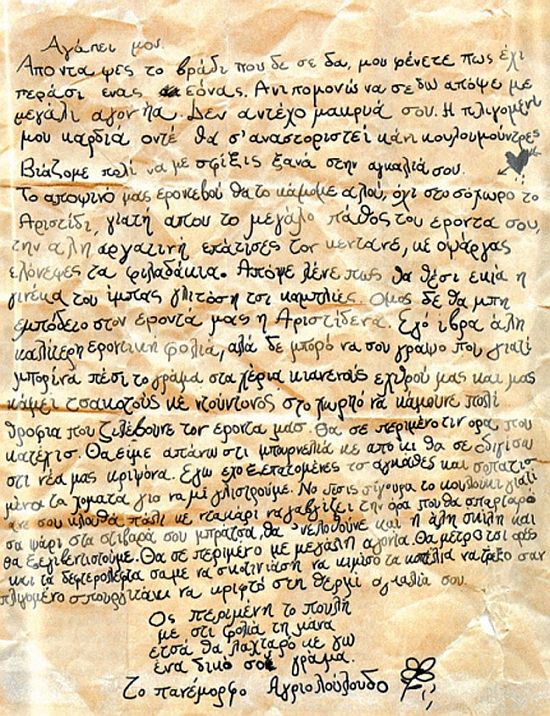 Αγάπει μου.
Απο ντα ψες το βράδι που δε σε δα, μου φένετε πως έχι
περάσι ενας εόνας. Ανιπομονώ να σε δω απόψε με
μεγάλι αγονηα. Δεν αντέχο μακρυά σου. Η πλιγομένι
μου καρδιά οντέ θα σ'αναστοριστεί κάνι κουλουμούντρες
Βιάζομε πολί να με σφίξις ξανά στην αγκαλιά σου.
Το αποψινό μας εροντεβού θα το κάμομε αλού, όχι στο σόχωρο το
Αριστίδι, γιατή απου το μεγάλο πάθος του εροντα σου,
την αλη αργατινή επάτισες τον μεντανέ, με
ελόνεψες τα φιλαδάκια. Απόψε λένε πως θα θέσι εκιά η
γινέκα του ίμπας γλιτόση τσι καμπλιές. Ομος δε θα μπη
εμπόδειο στον εροντά μας η Αριστιδένα. Εγό ιβρα άλη
καλίτερη εροντική φολιά, αλά δε μπορό να σου γράψο που γιατί
μπορί να πέσι το γράμα στα χέρια κιανενούς εχθρού μας και μας
κάμει τσακοτούς με ντουντονος στο χωργιό να κάμουνε πολί
θροφια που ζιλέβουνε τον εροντα μασ. Θα σε περιμένο τιν ορα που
κατέχισ. Θα είμε απάνω στι μπουρνελιά με από κι θα σε οδιγίσω
στι νέα μας κριψόνα. Εγω εχο ξεπατομένες τσ αγκαθές και σοπατισ
μένα τα χοματα για να μι γλιστρούμε. Νο πεσις σίγουρα το κουλούκι γιατί
ανε σου κλουθά πάλι με ντακάρι να γαβγίζει την όρα που θα σπαρταρό
σα ψάρι στα στιβαρά σου μπράτσα, θα νελουθούνε και η άλη σκίλη και
θα ξεγιβεντιστούμε. Θα σε περιμένο με μεγάλη αγονία. Θα μετρό τσι όρες
και τα δεφτερολεφτα σαμε να σκοτινιάσι να κιμίσο τα κοπέλια να τρέξο σαν
πλιγομένο σπουργιτάκι να κριφτό στη θερμί αγκαλιά σου.
Ος περιμένη το πουλή
με στι φολιά τη μάνα
ετσά θα λαχταρό με γω
ένα δικό σου γράμα.
Το πανέμορφο Αγριολούλουδο